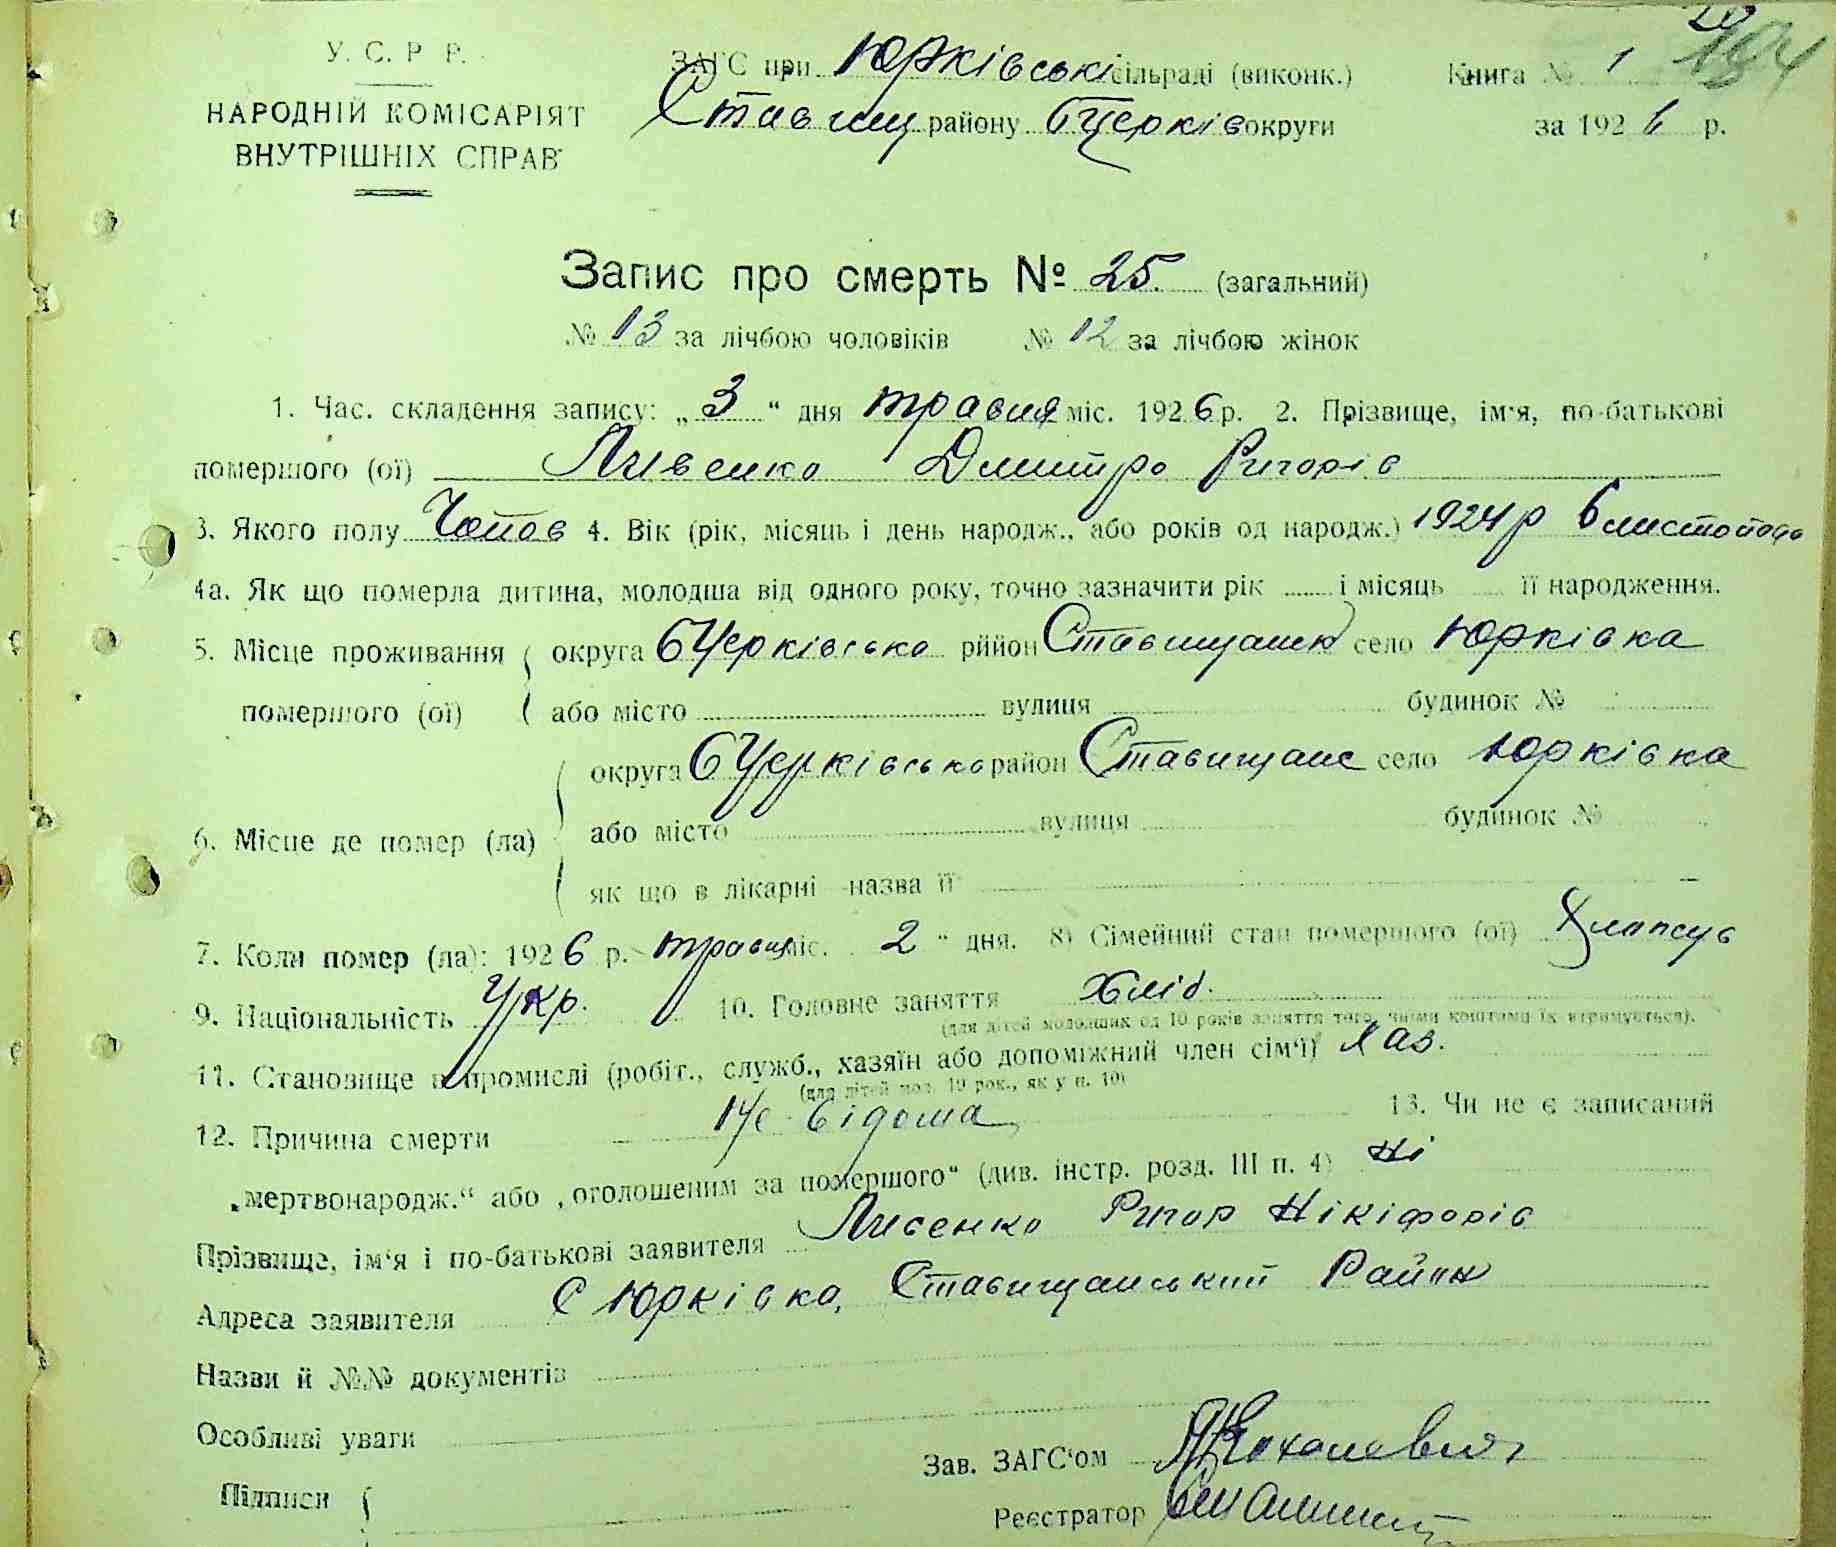 У. С. Р. Р.
НАРОДНІЙ КОМІСАРІЯТ
ВНУТРІШНІХ СПРАВ
ЗАГС при Юрківські сільраді (виконк.)
Ставищ району БЦерків округи
Книга № 1
за 1926 р.
Запис про смерть № 25. (загальний)
№ 13 за лічбою чоловіків № 12 за лічбою жінок
1. Час. складення запису: „3“ дня травня міс. 1926 р. 2. Прізвище, ім'я, по-батькові
помершого (ої) Лисенко Дмитро Ригорів
3. Якого полу Чолов 4. Вік (рік, місяць і день народж., або років од народж.) 1924 р 6 листопада
4а. Як що померла дитина, молодша від одного року, точно зазначити рік і місяць її народження.
5. Місце проживання округа БЦерківська рййон Ставищанск село Юрківка
помершого (ої) або місто вулиця будинок №
округа БЦерківська район Ставищанс село Юрківка
6. Місце де помер (ла) або місто вулиця будинок №
як що в лікарні назва її
7. Коли помер (ла): 1926 р. травня міс. 2 “ дня. 8) Сімейний стан помершого (ої)
9. Національність Укр. 10. Головне заняття Хліб.
(для дітей молодших од 10 років заняття того, чиїми коштами їх втримується).
11. Становище в промислі (робіт., служб., хазяїн або допоміжний член сім'ї) Хаз.
(для дітей мол. 10 рок., як у п. 10)
12. Причина смерти Не відома 13. Чи не є записаний
„мертвонародж.“ або „оголошеним за помершого“ (див. інстр. розд. III п. 4) Ні
Прізвище, ім'я і по-батькові заявителя Лисенко Ригор Нікіфорів
Адреса заявителя С Юрківка, Ставищанський Район
Назви й №№ документів
Особливі уваги
Зав. ЗАГС'ом
Підписи
Реєстратор